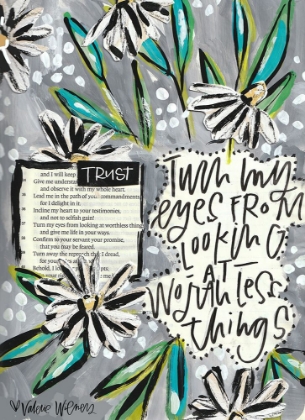 TRUST
and I will keep
Give me understa
and observe it with my whole heart.
Lead me in the path of your commandments,
for I delight in it.
Incline my heart to your testimonies,
and not to selfish gain!
Turn my eyes from looking at worthless things;
and give me life in your ways.
Confirm to your servant your promise,
that you may be feared.
Turn away the reproach that I dread,
for your
Behold, I
Turn my
eyes FROM
LOOKING
AT
WORTHLESS
things
Valerie Wieners